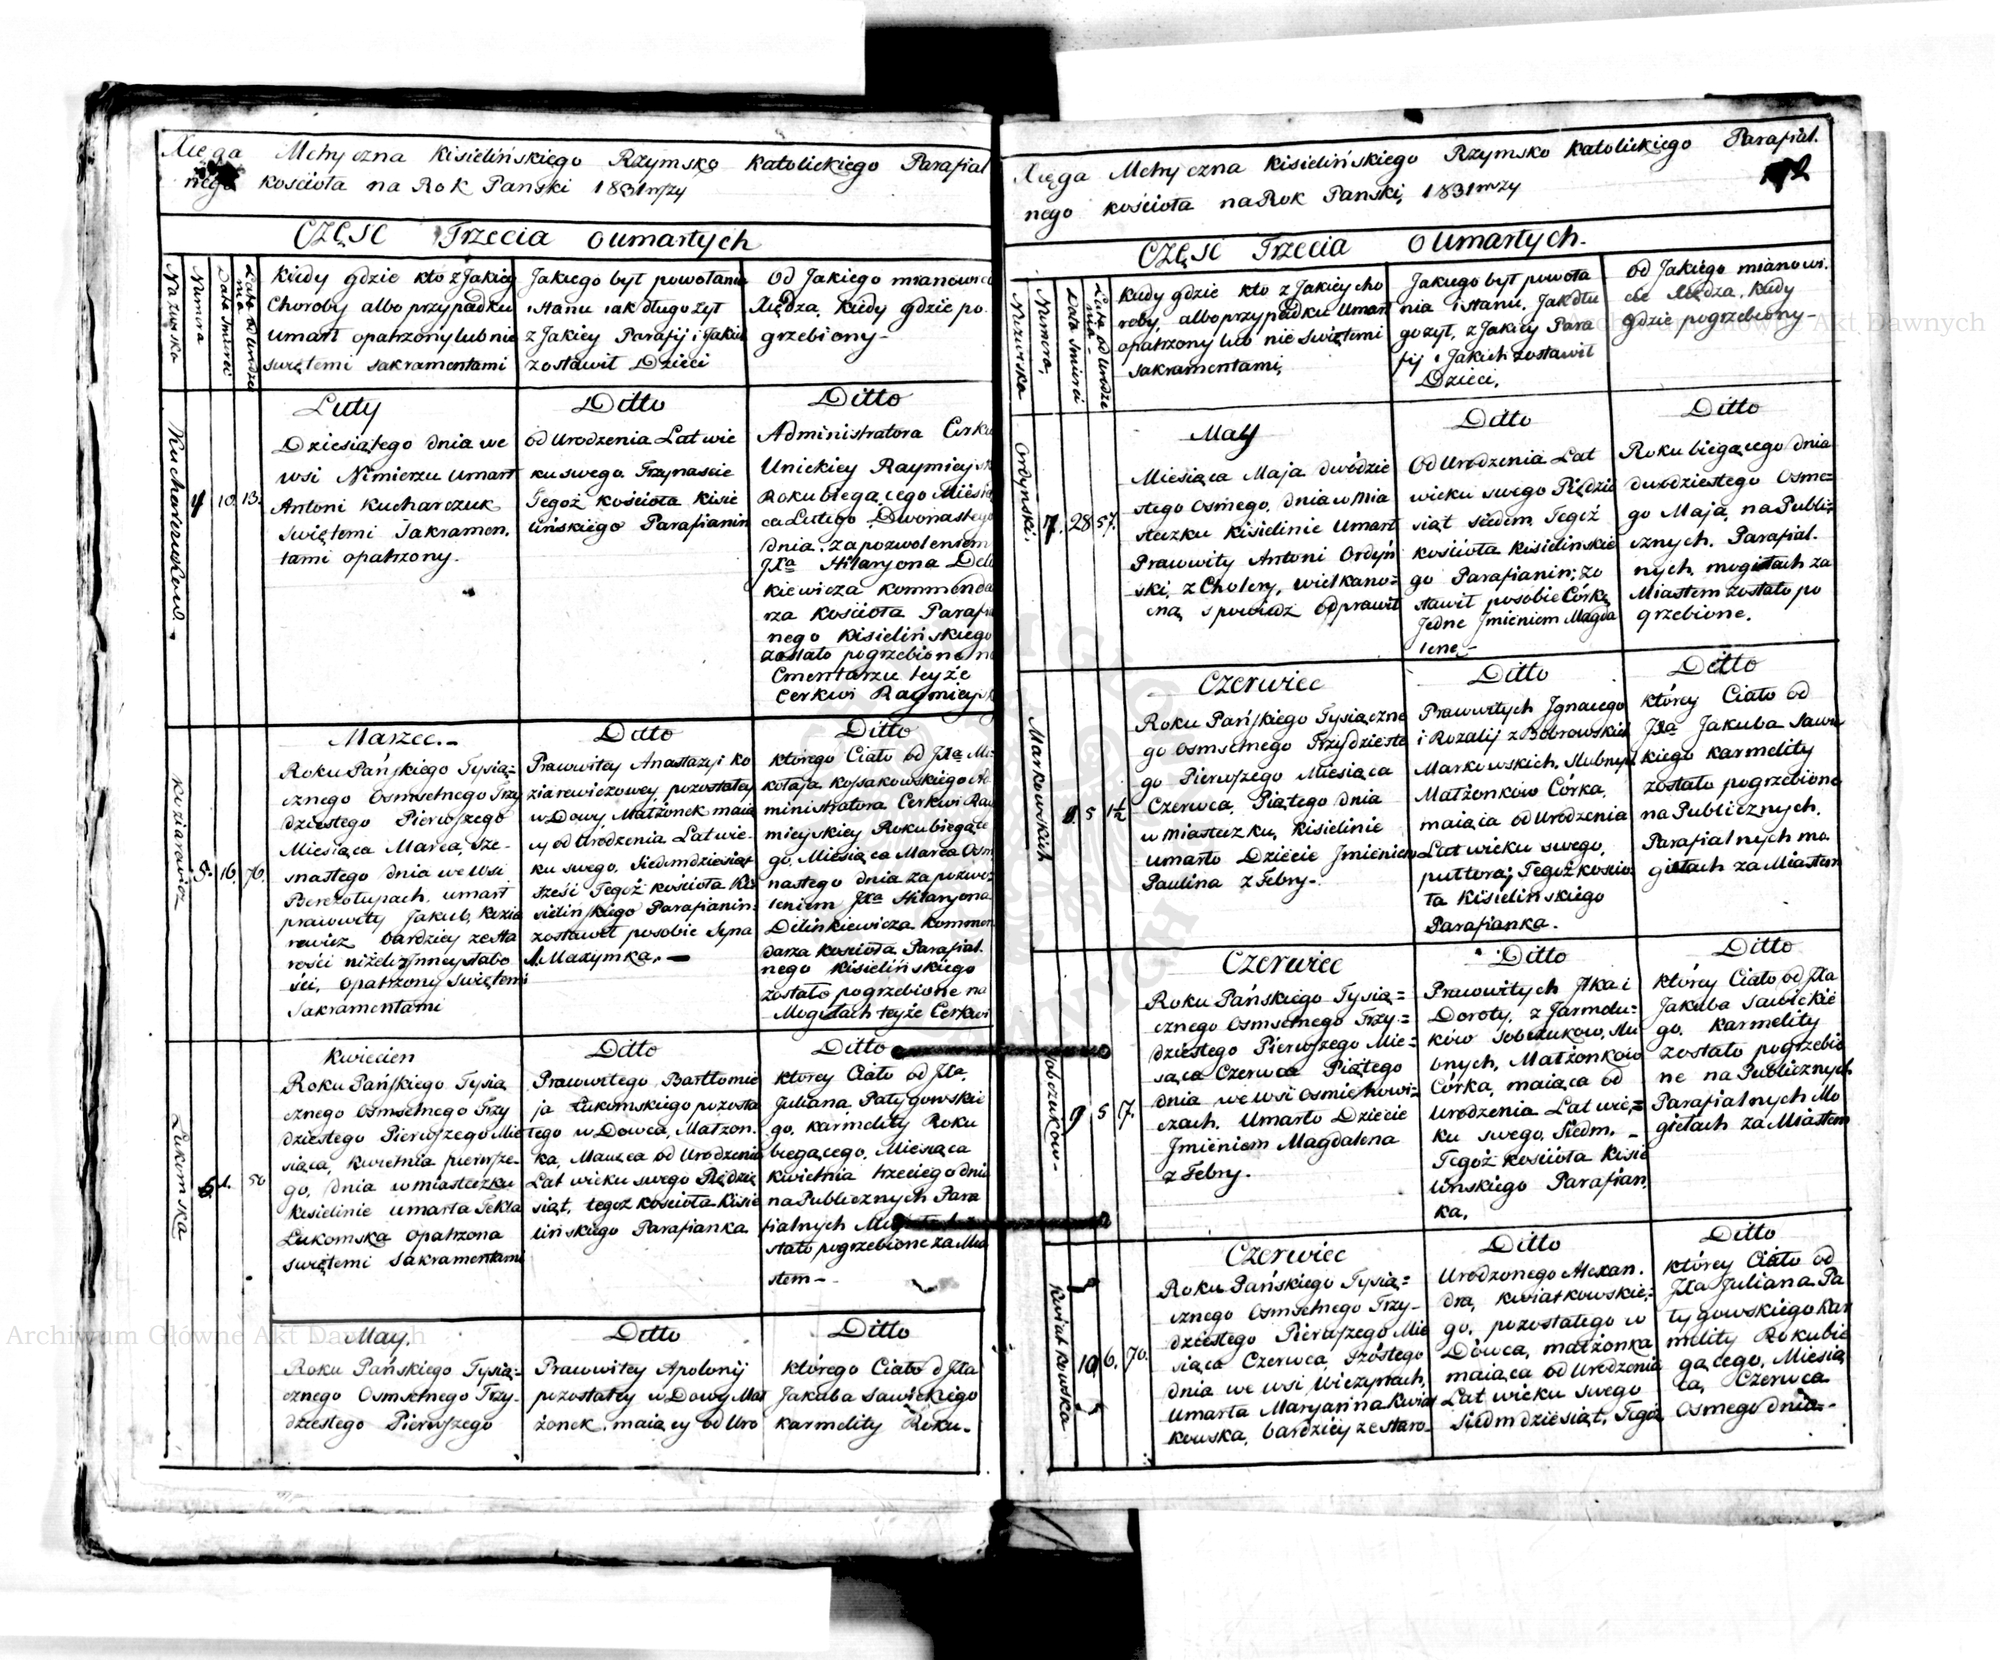 Xięga Metryczna Kisielińskiego Rzymsko Katolickiego Parafial
nego kościoła na Rok Panski 1831wszy
CZĘŚC Trzecia o umarłych
Nazwiska
Numera
Data śmierci
Lata od Urodze
nia
Kiedy gdzie kto z Jakiey
Choroby albo przypadku
umarł opatrzony lub nie
swiętemi sakramentami
Jakiego był powołania
i stanu iak długo żył
z Jakiey Parafij i Jakie
zostawił Dzieci
Od Jakiego mianowicie
Xiędza, kiedy gdzie po
grzebiony-
Kucharczuków.
4
10.
13.
Luty
Dziesiątego dnia we
wsi Nimierzu umarł
Antoni Kucharczuk
swiętemi Sakramen,
tami opatrzony.
Ditto
od Urodzenia Lat wie
ku swego Trzynascie
Tegoż kościoła Kisie
lińskiego Parafianin
Ditto
Administratora Cerkwi
Unickiey Raymieysk
Roku biegącego Miesią
ca Lutego Dwonastego
dnia, za pozwoleniem
JXa Hilaryona Deli
kiewicza kommenda
rza kościoła Parafial
nego Kisielińskiego
zostało pogrzebione na
Cmentarzu teyże
Cerkwi Raymieysk
Koziarewicz
5.
16.
76.
Marzec.-
Roku Pańskiego Tysią=
cznego Osmsetnego Trzy
dziestego Pierwszego
Miesiąca Marca, sze-
snastego dnia we wsi
Berezołupach, umarł
prawowity Jakub Kozia
rewicz bardziey ze sta
rości niżeli z inney słabo
ści, opatrzony swiętemi
Sakramentami
Ditto
Prawowitey Anastazyi Ko
ziarewiczowey pozostałey
w Dowy Małżonek maią
cy od Urodzenia Lat wie-
ku swego, Siedmdziesiąt
sześć Tegoż kościoła Ki
sielińskiego Parafianin
zostawił posobie Syna
Maxymka. —
Ditto
którego Ciało od JXa Mi
kołaja Kossakowskiego Ad
ministratora Cerkwi Ray
mieyskiey Roku biegące
go, Miesiąca Marca Osm
nastego dnia za pozwo
leniem JXa Hilaryona
Delinkiewicza kommen
darza kościoła Parafial.
nego Kisielińskiego
zostało pogrzebione na
Mogiłach teyże Cerkwi
Łukomska
6
1.
50
Kwiecien
Roku Pańskiego Tysią
cznego Osmsetnego Trzy
dziestego Pierwszego Mie
siąca, kwietnia pierwsze-
go, dnia w miasteczku
Kisielinie umarła Tekla
Łukomska opatrzona
swiętemi Sakramentami
Ditto
Prawowitego Bartłomie
ja Łukomskiego pozosta
łego w Dowca, Małzon.
ka, Maiąca od Urodzenia
Lat wieku swego Pięćdzie
siąt, tegoż kościoła Kisie
lińskiego Parafianka
Ditto
którey Ciało od JXa,
Juliana Patygowskie
go, karmelity Roku
biegącego, Miesiąca
kwietnia trzeciego dnia
na Publicznych Para
fialnych
stało pogrzebione za Mia
stem-
May,
Roku Pańskiego Tysią=
cznego Osmsetnego Trzy-
dziestego Pierwszego
Ditto
Prawowitey Apolonij
pozostałey w Dowy Mał
żonek, maiący od Uro
Ditto
którego Ciało od JXa
Jakuba Sawickiego
karmelity Roku-
Xięga Metryczna Kisielińskiego Rzymsko Katolickiego Parafial.
nego kościoła na Rok Panski, 1831wszy
CZĘŚC Trzecia o umarłych.
Nazwiska
Numera,
Data śmierci
Lata od Urodze
nia-
Kiedy gdzie kto z Jakiey cho
roby, albo przypadku umarł
opatrzony lub nie swiętemi
sakramentami,
Jakiego był powoła
nia i stanu, Jak dłu
go zył, z Jakiey Para
fij i Jakich zostawił
Dzieci,
od Jakiego mianowi.
cie Xiędza, kiedy
gdzie pogrzebiony-
Ordyński.
7.
28
57.
May
Miesiąca Maja dwódzie
stego Osmego, dnia w mia
steczku Kisielinie umarł
Prawowity Antoni Ordyń
ski, z Cholery, wielkano=
cną spowiedz odprawił
Ditto
Od Urodzenia Lat
wieku swego Pięćdzie
siąt siedem Tegoż
kościoła Kisielińskie
go Parafianin; zo
stawił posobie Córkę
Jedne Jmieniem Magda
lenę-
Ditto
Roku biegącego dnia
dwódziestego Osme=
go Maja, na Publi=
cznych, Parafial.
nych, mogiłach za
Miastem zostało po
grzebione.
Markowskich
8.
5
1½
Czerwiec
Roku Pańskiego Tysiączne
go Osmsetnego Trzydzieste
go Pierwszego Miesiąca
Czerwca, Piątego dnia
w miasteczku, Kisielinie
umarło Dziécie Jmieniem
Paulina z Febry-.
Ditto
Prawowitych Jgnacego
i Rozalij z Bobrowskich
Markowskich, slubnych
Małżonków Córka,
maiąca od Urodzenia
Lat wieku swego,
pułtora; Tegoż kościo
ła Kisielińskiego
Parafianka.
Ditto
którey Ciało od
JXa Jakuba Sawic
kiego karmelity
zostało pogrzebione
na Publicznych,
Parafialnych mo.
giłach za Miastem
Sobczuków-
9
5
7.
Czerwiec
Roku Pańskiego Tysią=
cznego Osmsetnego Trzy=
dziestego Pierwszego Mie=
siąca Czerwca Piątego
dnia we wsi Osmichowi=
czach, umarło Dziecie
Jmieniem Magdalena
z Febry.
Ditto
Prawowitych Jlka i
Doroty, z Jarmolu=
ków Sobczuków, slu
bnych, Małżonków
Córka, maiąca od
urodzenia Lat wie=
ku swego, Siedm. -
Tegoż kościoła Kisie
lińskiego Parafian,
ka.
Ditto
którey Ciało od JXa
Jakuba Sawickie
go, karmelity
zostało pogrzebio
ne na Publicznych
Parafialnych Mo
giełach za Miastem
Kwiatkowska
10
6.
70.
Czerwiec
Roku Pańskiego Tysią=
cznego Osmsetnego Trzy-
dziestego Pierwszego Mie
siąca Czerwca, Szóstego
dnia we wsi Wiczyniach,
umarła Maryanna Kwiat
kowska, bardziey ze staro-
Ditto
Urodzonego Alexan.
dra, Kwiatkowskie=
go, pozostałego w
Dówca, małżonka
maiąca od Urodzenia
Lat wieku swego
siedmdziésiąt, Tegoż
Ditto
którey Ciało od
JXa Juliana Pa
tygowskiego kar
melity Roku bie
gącego, Miesią
ca, Czerwca
Osmego dnia-
Archiwum Główne Akt Dawnych
Archiwum Główne Akt Dawnych